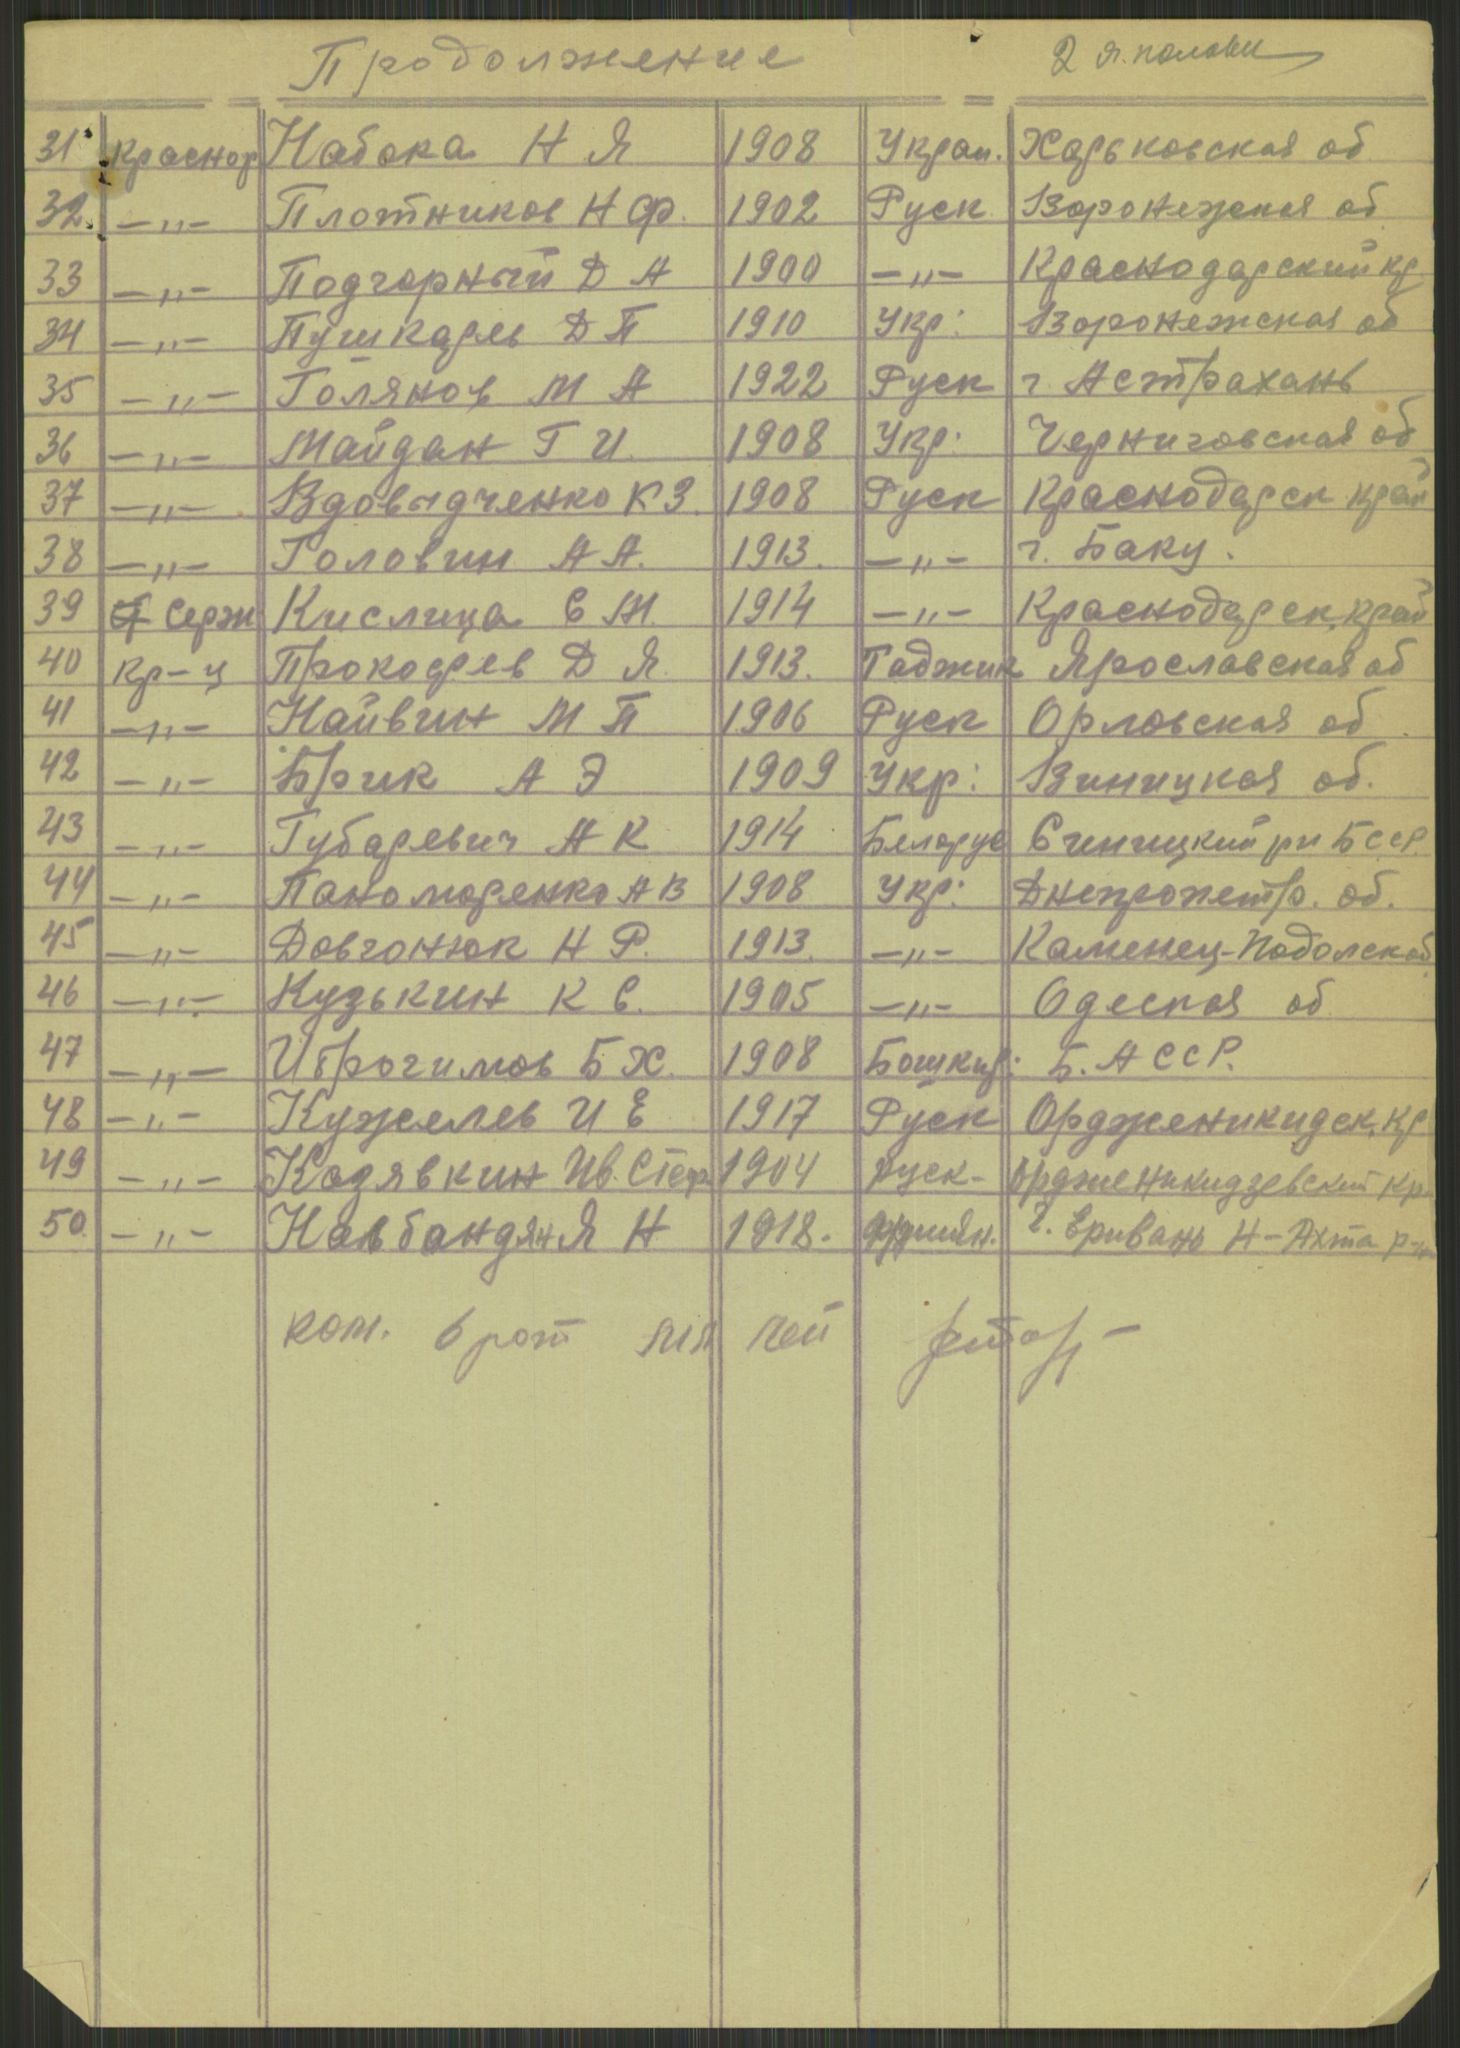 Продолжение 2 я. половин
31 Краснор Набока Н Я 1908 Украи. Харьковская об
32. —„— Плотников Н Ф. 1902 Руск Воронежская об
33 —„— Подгорный Д А 1900 —„— Краснодарский кр
34 —„— Пушкарев Д П 1910 Укр: Воронежская об
35 —„— Голянов М А 1922 Руск г. Астрахань
36 —„— Майдан Г И. 1908 Укр: Черниговская об
37 —„— Вдовыдченко К З. 1908 Руск Краснодарск край
38 —„— Головин А А. 1913. —„— г. Баку.
39 Серж Кислица Е М. 1914 —„— Краснодарск. край
40 Кр-ц Прокофев Д Я. 1913. Таджик Ярославская об
41 —„— Найвин М П 1906 Руск Орловская об.
42 —„— Брик А Э 1909 Укр: Виницкая об.
43 —„— Губаревич А К 1914 Белорус Синицкий рн БССР.
44 —„— Паномаренко А В 1908 Укр: Днепропетр. об.
45 —„— Довгонюк Н Р. 1913. —„— Каменец-Подолск об
46 —„— Кузькин К С. 1905 —„— Одеская об
47 —„— Иброгимов Б Х. 1908 Бошкир: Б. АССР.
48 —„— Кужелев И Е 1917 Руск Ордженикидск. кр
49 —„— Козявкин Ив. Стеф 1904 руск- Ордженикидзевский кр.
50 —„— Налбандян Я Н 1918. Армян. г. Еривань Н-Ахта р-н
ком. 6 рот